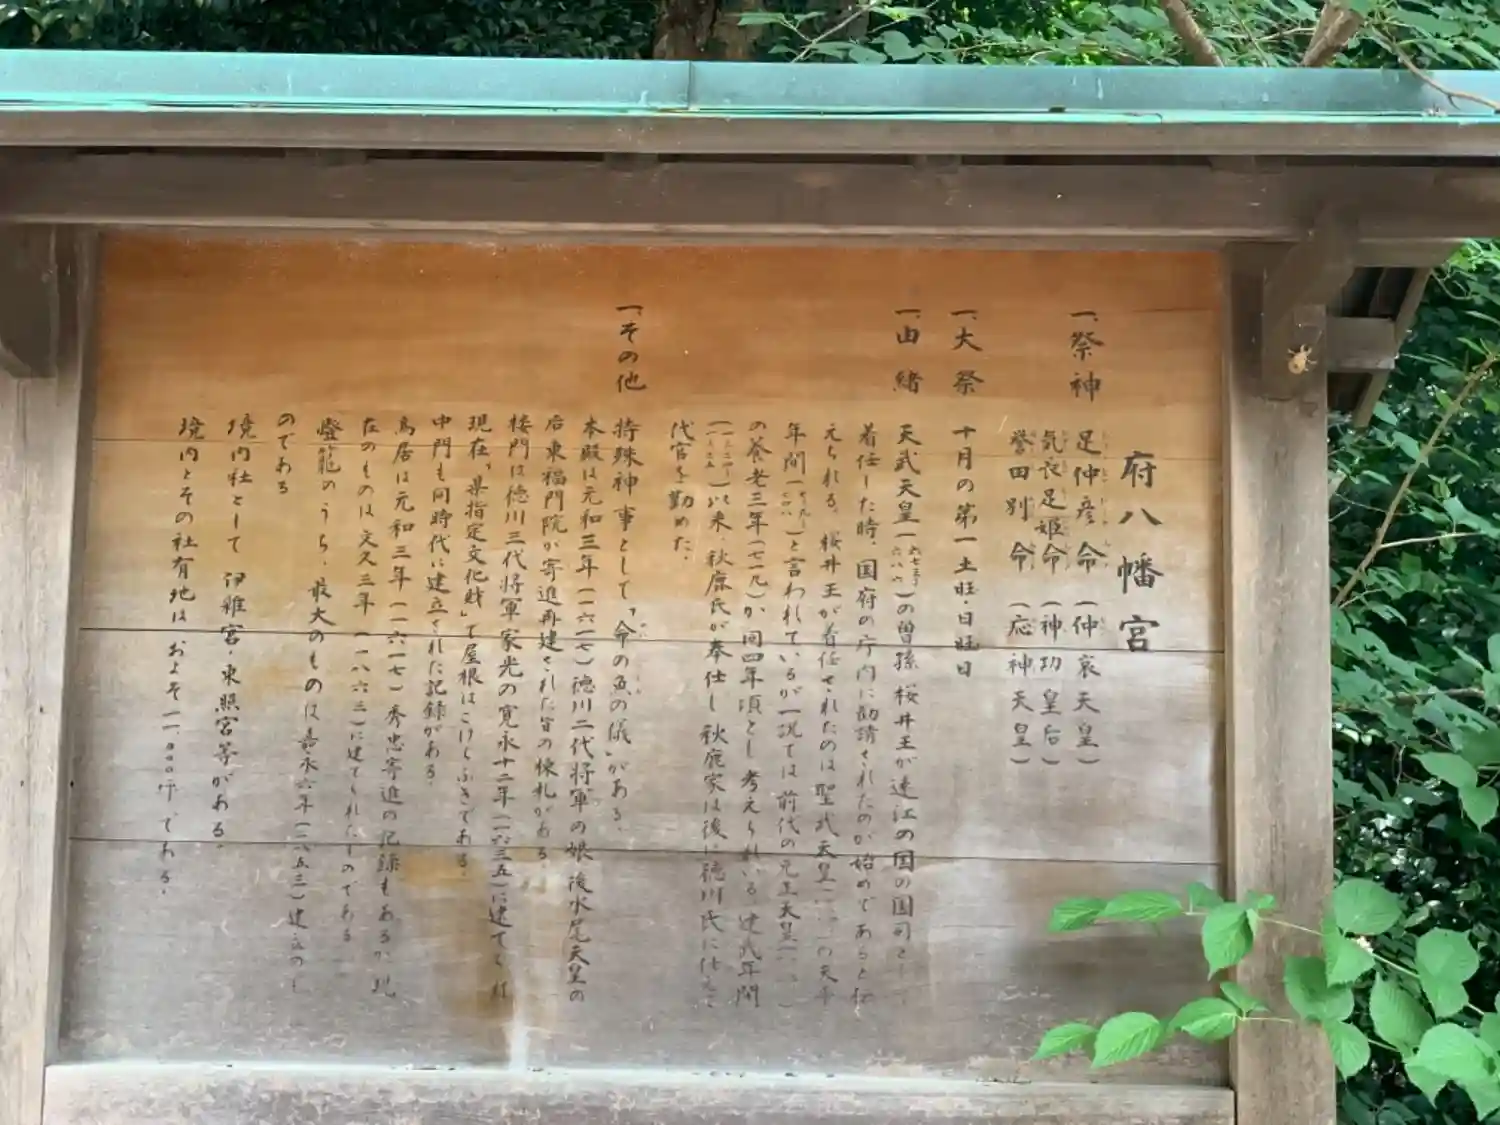 府八幡宮
一、祭神
足仲彦命(仲哀天皇)
気長足姫命(神功皇后)
誉田別命(応神天皇)
一、大祭
十月の第一土旺・日旺日
一、由緒
天武天皇(六七三〜六八六)の曽孫、桜井王が遠江の国の国司とし
着任した時、国府の庁内に勧請されたのが始めであると伝
えられる。桜井王が着任されたのは聖武天皇の天平
年間と言われているが一説では前代の元正天皇
の養老三年(七一九)か同四年頃とし考えられいる。建武年間
以来、秋鹿氏が奉仕し秋鹿家は後に徳川氏に仕え
代官を勤めた。
一、その他
特殊神事として「命の魚の儀」がある。
本殿は元和三年(一六一七)徳川二代将軍の娘、後水尾天皇の
后東福門院が寄進再建された旨の棟札がある。
楼門は徳川三代将軍家光の寛永十二年(一六三五)に建てられ
現在、「県指定文化財」で屋根はこけらぶきである。
中門も同時代に建立された記録がある。
鳥居は元和三年(一六一七)秀忠寄進の記録もあるが現
在のものは文久三年(一八六三)に建てられたものである
燈籠のうち、最大のものは嘉永六年(一八五三)建立のも
のである
境内社として 伊雑宮・東照宮等がある。
境内とその社有地は およそ一一、〇〇〇坪 である。